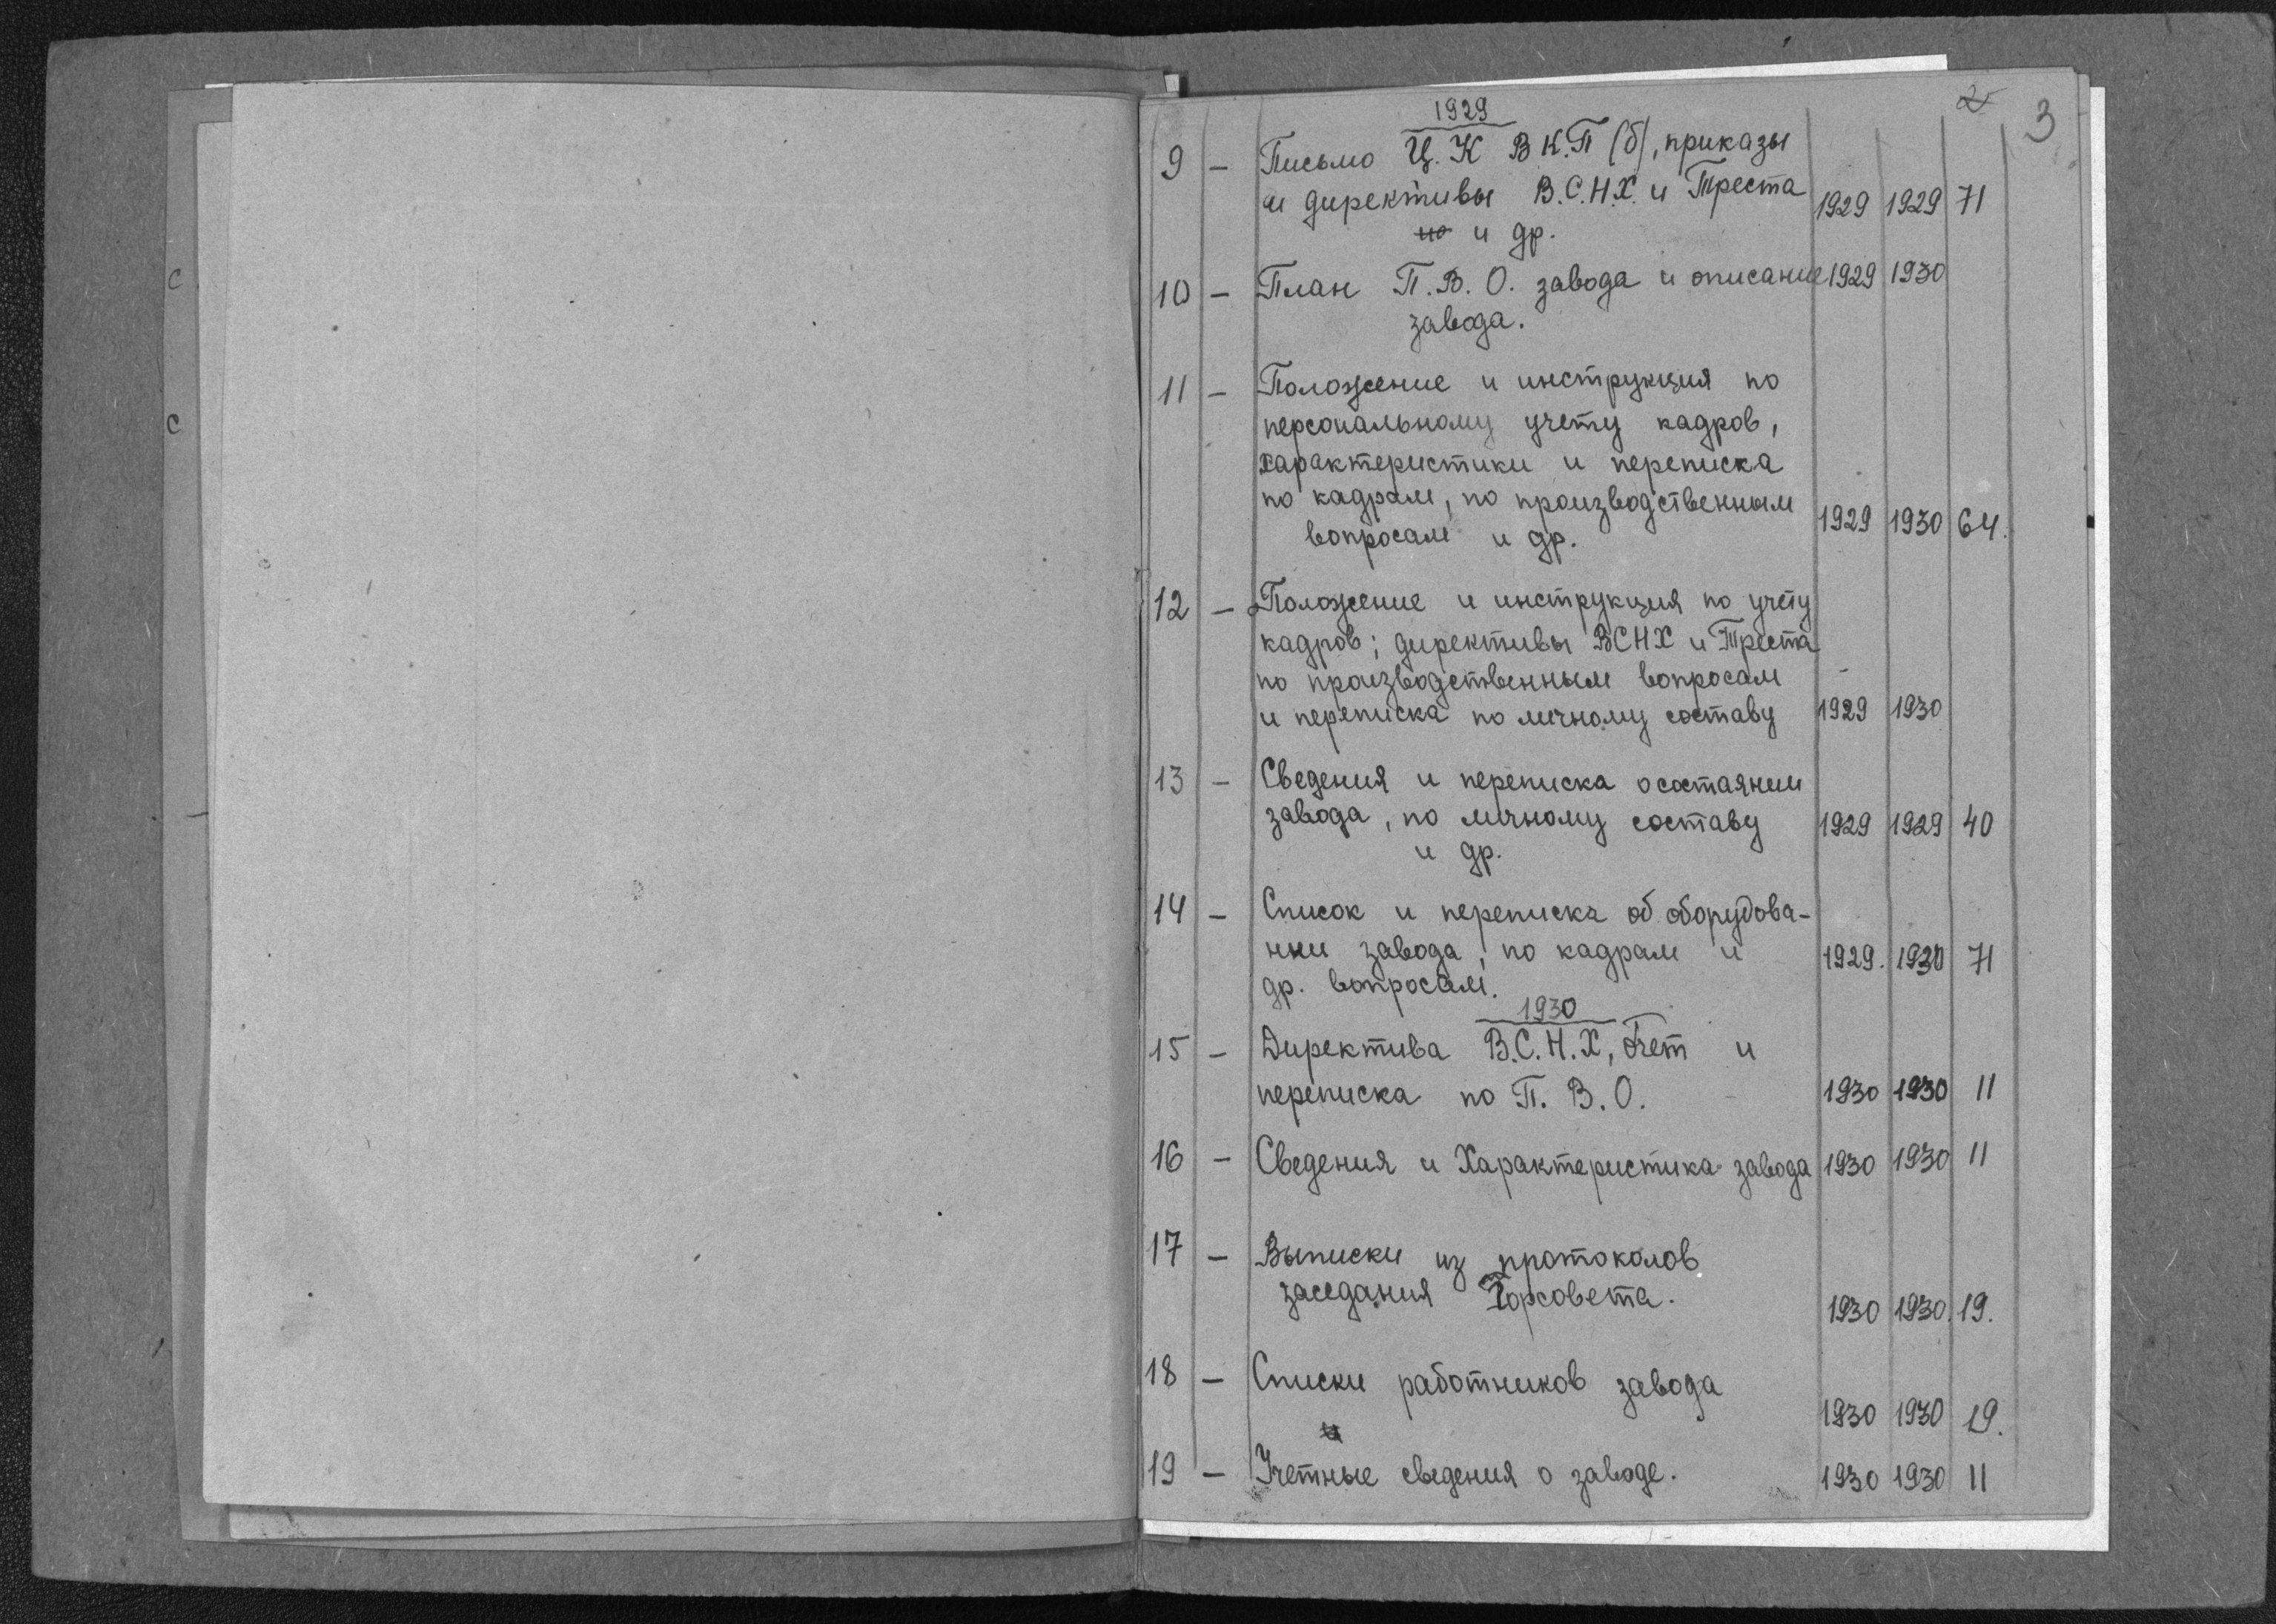 2 3
1929
9 – Письмо Ц. К В К.П (б), приказы
и директивы В.С.Н.Х. и Треста 1929 1929 71
и др.
10 – План П. В. О. завода и описание 1929 1930
завода.
11 – Положение и инструкция по
персональному учету кадров,
характеристики и переписка
по кадрам, по производственным
вопросам и др. 1929 1930 64.
12 – Положение и инструкция по учету
кадров; директивы ВСНХ и Треста
по производственным вопросам
и переписка по личному составу 1929 1930
13 – Сведения и переписка о состаянии
завода, по личному составу 1929 1929 40
и др.
14 – Список и переписка об оборудова-
нии завода, по кадрам и 1929. 1930 71
др. вопросам.
1930
15 – Директива В.С.Н.Х, Отчет и
переписка по П. В. О. 1930 1930 11
16 – Сведения и Характеристика завода 1930 1930 11
17 – Выписки из протоколов
заседания Горсовета. 1930 1930. 19.
18 – Списки работников завода
1930 1930 19.
19 – Учетные сведения о заводе. 1930 1930 11
с
с